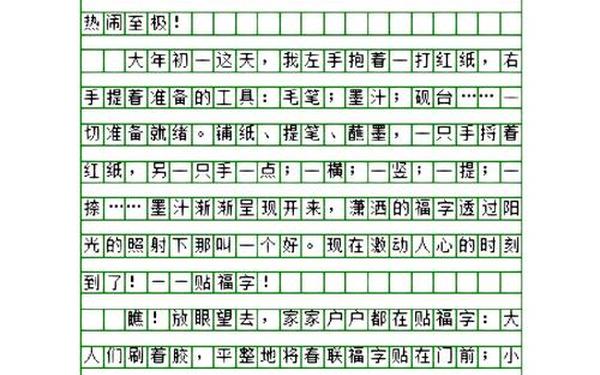 热闹至极！
大年初一这天，我左手抱着一打红纸，右
手提着准备的工具：毛笔；墨汁；砚台……一
切准备就绪。铺纸、提笔、蘸墨，一只手捋着
红纸，另一只手一点；一横；一竖；一提；一
捺……墨汁渐渐呈现开来，潇洒的福字透过阳
光的照射下那叫一个好。现在激动人心的时刻
到了！——贴福字！
瞧！放眼望去，家家户户都在贴福字：大
人们刷着胶，平整地将春联福字贴在门前；小